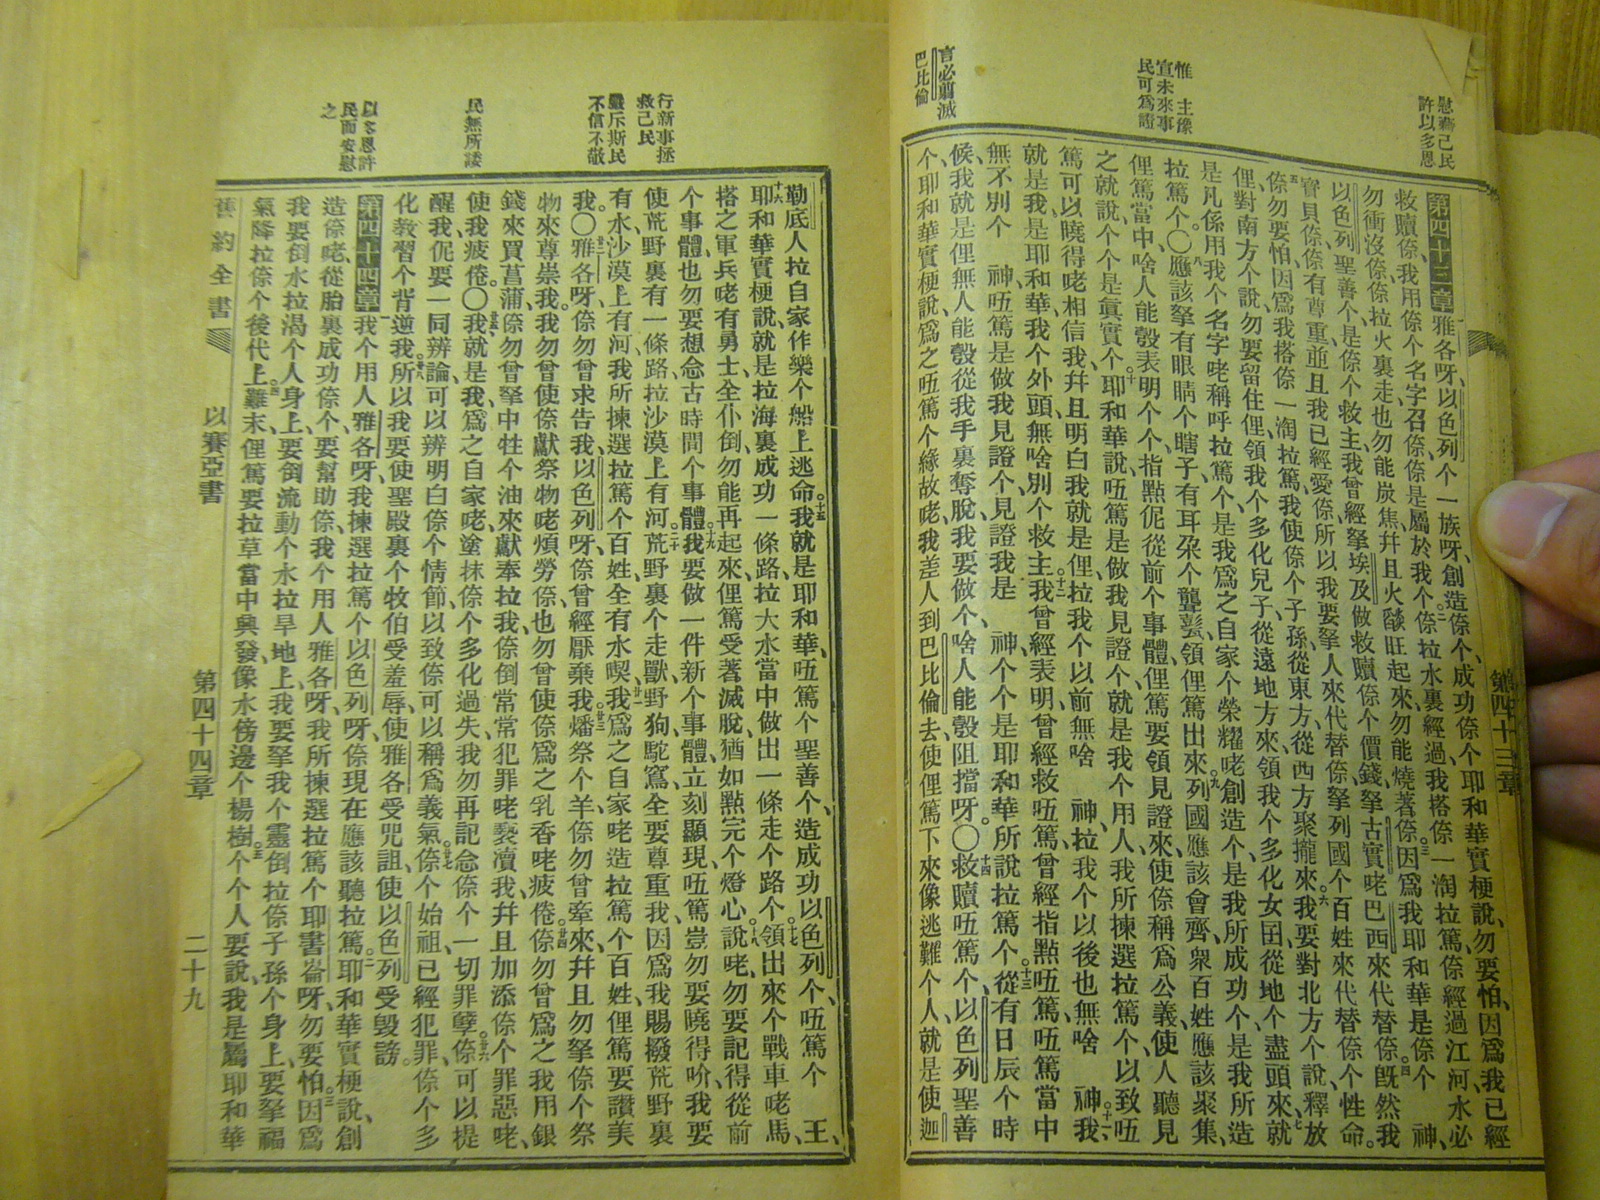 慰藉己民
許以多恩
惟　主豫
宣未來事
民可爲證
言必翦滅
巴比倫
第四十三章雅各呀、以色列个一族呀、創造倷个、成功倷个耶和華實梗說、勿要怕、因爲我已經
救贖倷、我用倷个名字召倷、倷是屬於我个。倷拉水裏經過、我搭倷一淘拉篤、倷經過江河、水必
勿衝沒倷、倷拉火裏走、也勿能炭焦、幷且火燄旺起來、勿能燒著倷。因爲我耶和華是倷个　神、
以色列聖善个、是倷个救主、我曾經拏埃及做救贖倷个價錢、拏古實咾巴西來代替倷。旣然我
寶貝倷、倷有尊重、並且我已經愛倷、所以我要拏人來代替倷、拏列國个百姓來代替倷个性命。
倷勿要怕、因爲我搭倷一淘拉篤、我使倷个子孫、從東方、從西方聚攏來。我要對北方个說、釋放
俚、對南方个說、勿要留住俚、領我个多化兒子、從遠地方來、領我个多化女囝、從地个盡頭來、就
是凡係用我个名字咾稱呼拉篤个、是我爲之自家个榮耀咾創造个、是我所成功个、是我所造
拉篤个。〇應該拏有眼睛个瞎子、有耳朶个聾甏、領俚篤出來。列國應該會齊、衆百姓應該聚集、
俚篤當中、啥人能彀表明个个、指點伲從前个事體、俚篤要領見證來、使倷稱爲公義、使人聽見
之就說、个个是眞實个。耶和華說、唔篤是做我見證个、就是我个用人、我所揀選拉篤个、以致唔
篤可以曉得咾相信我、幷且明白我就是俚、拉我个以前無啥　神、拉我个以後也無啥　神。我
就是我、是耶和華、我个外頭無啥別个救主。我曾經表明、曾經救唔篤、曾經指點唔篤、唔篤當中
無不別个　神、唔篤是做我見證个、見證我是　神个、个是耶和華所說拉篤个。從有日辰个時
候、我就是俚、無人能彀從我手裏奪脫、我要做个、啥人能彀阻擋呀。〇救贖唔篤个、以色列聖善
个、耶和華實梗說、爲之唔篤个緣故咾、我差人到巴比倫去、使俚篤下來像逃難个人、就是使迦
第四十三章
行新事拯
救己民
嚴斥斯民
不信不敬
民無所諉
以多恩許
民而安慰
之
勒底人拉自家作樂个船上逃命。我就是耶和華、唔篤个聖善个、造成功以色列个、唔篤个　王、
耶和華實梗說、就是拉海裏成功一條路、拉大水當中做出一條走个路个。領出來个戰車咾馬、
搭之軍兵咾有勇士、全仆倒、勿能再起來、俚篤受著滅脫、猶如點完个燈心。說咾、勿要記得從前
个事體、也勿要想念古時間个事體。我要做一件新个事體、立刻顯現、唔篤豈勿要曉得吤、我要
使荒野裏有一條路、拉沙漠上有河。荒野裏个走獸野狗、駝鳥、全要尊重我、因爲我賜撥荒野裏
有水、沙漠上有河、我所揀選拉篤个百姓、全有水喫。我爲之自家咾造拉篤个百姓、俚篤要讚美
我。〇雅各呀、倷勿曾求告我、以色列呀、倷曾經厭棄我。燔祭个羊、倷勿曾牽來、幷且勿拏倷个祭
物來尊崇我、我勿曾使倷獻祭物咾煩勞倷、也勿曾使倷爲之乳香咾疲倦。倷勿曾爲之我用銀
錢來買菖蒲、倷勿曾拏中牲个油來獻奉拉我、倷倒常常犯罪咾褻瀆我、幷且加添倷个罪惡咾、
使我疲倦。〇我就是我、爲之自家咾塗抹倷个多化過失、我勿再記念倷个一切罪孽。倷可以提
醒我、伲要一同辨論、可以辨明白倷个情節、以致倷可以稱爲義氣。倷个始祖、已經犯罪、倷个多
化教習个背逆我。所以我要使聖殿裏个牧伯受羞辱、使雅各受咒詛、使以色列受毀謗。
第四十四章我个用人雅各呀、我揀選拉篤个以色列呀、倷現在應該聽拉篤。耶和華實梗說、創
造倷咾、從胎裏成功倷个、要幫助倷、我个用人雅各呀、我所揀選拉篤个耶書崙呀、勿要怕。因爲
我要倒水拉渴个人身上、要倒流動个水拉旱地上、我要拏我个靈倒拉倷子孫个身上、要拏福
氣降拉倷个後代上。難末、俚篤要拉草當中興發、像水傍邊个楊樹。个个人要說、我是屬耶和華
舊約全書　以賽亞書　第四十四章　二十九